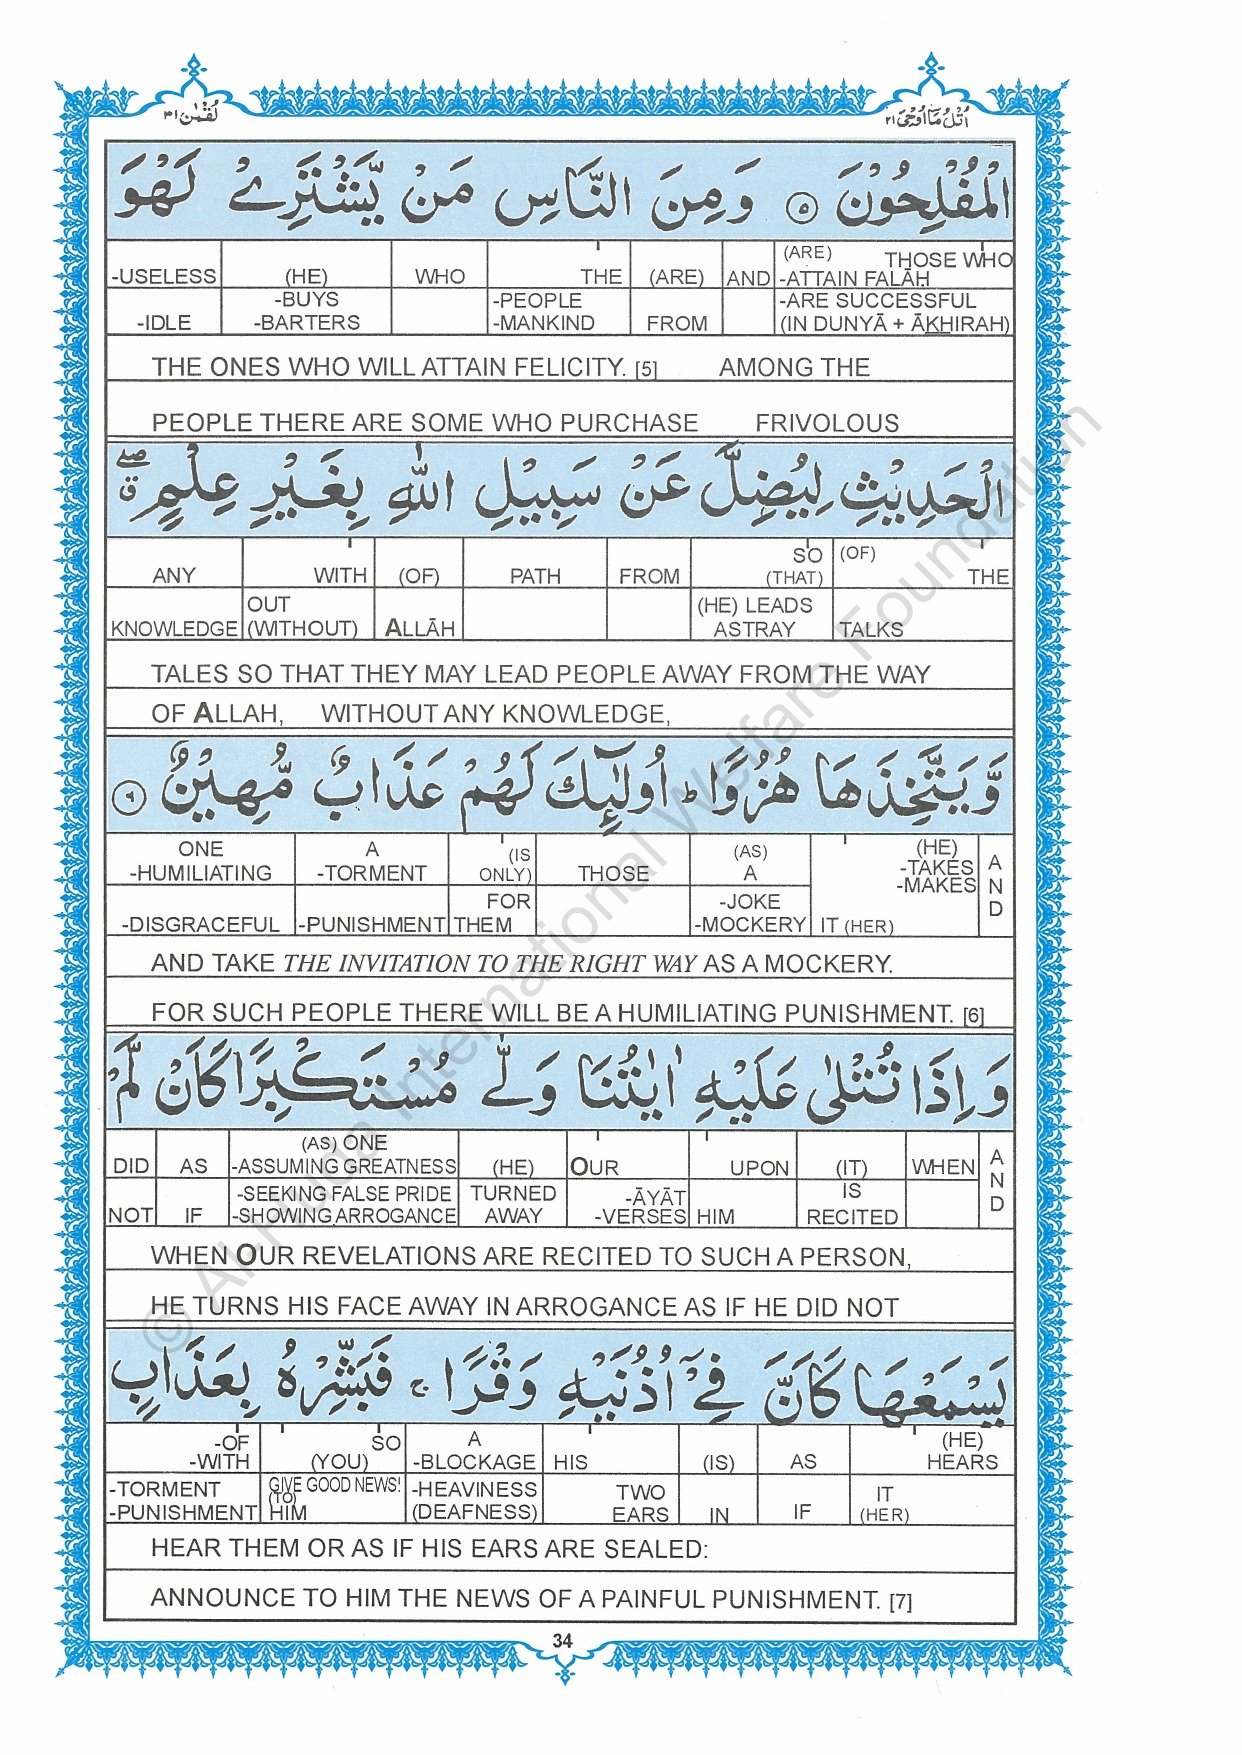 لُقْمٰن ٣١ اُتْلُ مَآ اُوْحِیَ ٢١
الْمُفْلِحُوْنَ ٥ وَمِنَ النَّاسِ مَنْ يَّشْتَرِيْ لَهْوَ
-USELESS (HE) WHO THE (ARE) AND (ARE) THOSE WHO -ATTAIN FALĀH
-IDLE -BUYS -BARTERS -PEOPLE -MANKIND FROM -ARE SUCCESSFUL (IN DUNYĀ + ĀKHIRAH)
THE ONES WHO WILL ATTAIN FELICITY. [5] AMONG THE
PEOPLE THERE ARE SOME WHO PURCHASE FRIVOLOUS
الْحَدِيْثِ لِيُضِلَّ عَنْ سَبِيْلِ اللّٰهِ بِغَيْرِ عِلْمٍ ۖق
ANY WITH (OF) PATH FROM SO (THAT) (OF) THE
KNOWLEDGE OUT (WITHOUT) ALLĀH (HE) LEADS ASTRAY TALKS
TALES SO THAT THEY MAY LEAD PEOPLE AWAY FROM THE WAY
OF ALLAH, WITHOUT ANY KNOWLEDGE,
وَّيَتَّخِذَهَا هُزُوًا ؕ اُولٰٓئِكَ لَهُمْ عَذَابٌ مُّهِيْنٌ ٦
ONE -HUMILIATING A -TORMENT (IS ONLY) THOSE (AS) A (HE) -TAKES -MAKES AND
-DISGRACEFUL -PUNISHMENT FOR THEM -JOKE -MOCKERY IT (HER)
AND TAKE THE INVITATION TO THE RIGHT WAY AS A MOCKERY.
FOR SUCH PEOPLE THERE WILL BE A HUMILIATING PUNISHMENT. [6]
وَاِذَا تُتْلٰى عَلَيْهِ اٰيٰتُنَا وَلّٰى مُسْتَكْبِرًا كَاَنْ لَّمْ
DID AS (AS) ONE -ASSUMING GREATNESS (HE) OUR UPON (IT) WHEN AND
NOT IF -SEEKING FALSE PRIDE -SHOWING ARROGANCE TURNED AWAY -ĀYĀT -VERSES HIM IS RECITED
WHEN OUR REVELATIONS ARE RECITED TO SUCH A PERSON,
HE TURNS HIS FACE AWAY IN ARROGANCE AS IF HE DID NOT
يَسْمَعْهَا كَاَنَّ فِيْٓ اُذُنَيْهِ وَقْرًا ۚ فَبَشِّرْهُ بِعَذَابٍ
-OF -WITH SO (YOU) A -BLOCKAGE HIS (IS) AS (HE) HEARS
-TORMENT -PUNISHMENT GIVE GOOD NEWS! (TO) HIM -HEAVINESS (DEAFNESS) TWO EARS IN IF IT (HER)
HEAR THEM OR AS IF HIS EARS ARE SEALED:
ANNOUNCE TO HIM THE NEWS OF A PAINFUL PUNISHMENT. [7]
34
© Al-Huda International Welfare Foundation